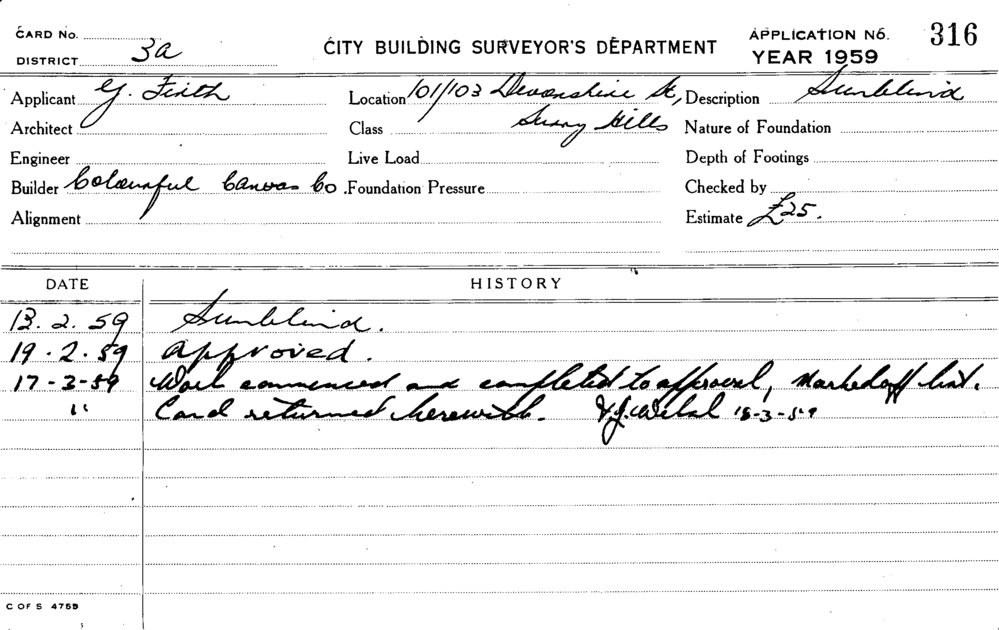 CARD No.
DISTRICT 3a
CITY BUILDING SURVEYOR'S DEPARTMENT
APPLICATION No. 316
YEAR 1959
Applicant G. Firth
Location 101/103 Devonshire St,
Description Sunblind
Architect
Class Surry Hills
Nature of Foundation
Engineer
Live Load
Depth of Footings
Builder Colourful Canvas Co.
Foundation Pressure
Checked by
Alignment
Estimate £25.
DATE HISTORY
13.2.59 Sunblind.
19.2.59 Approved.
17-3-59 Work commenced and completed to approval, Marked off list.
" Card returned herewith. 18-3-59
C OF S 475B